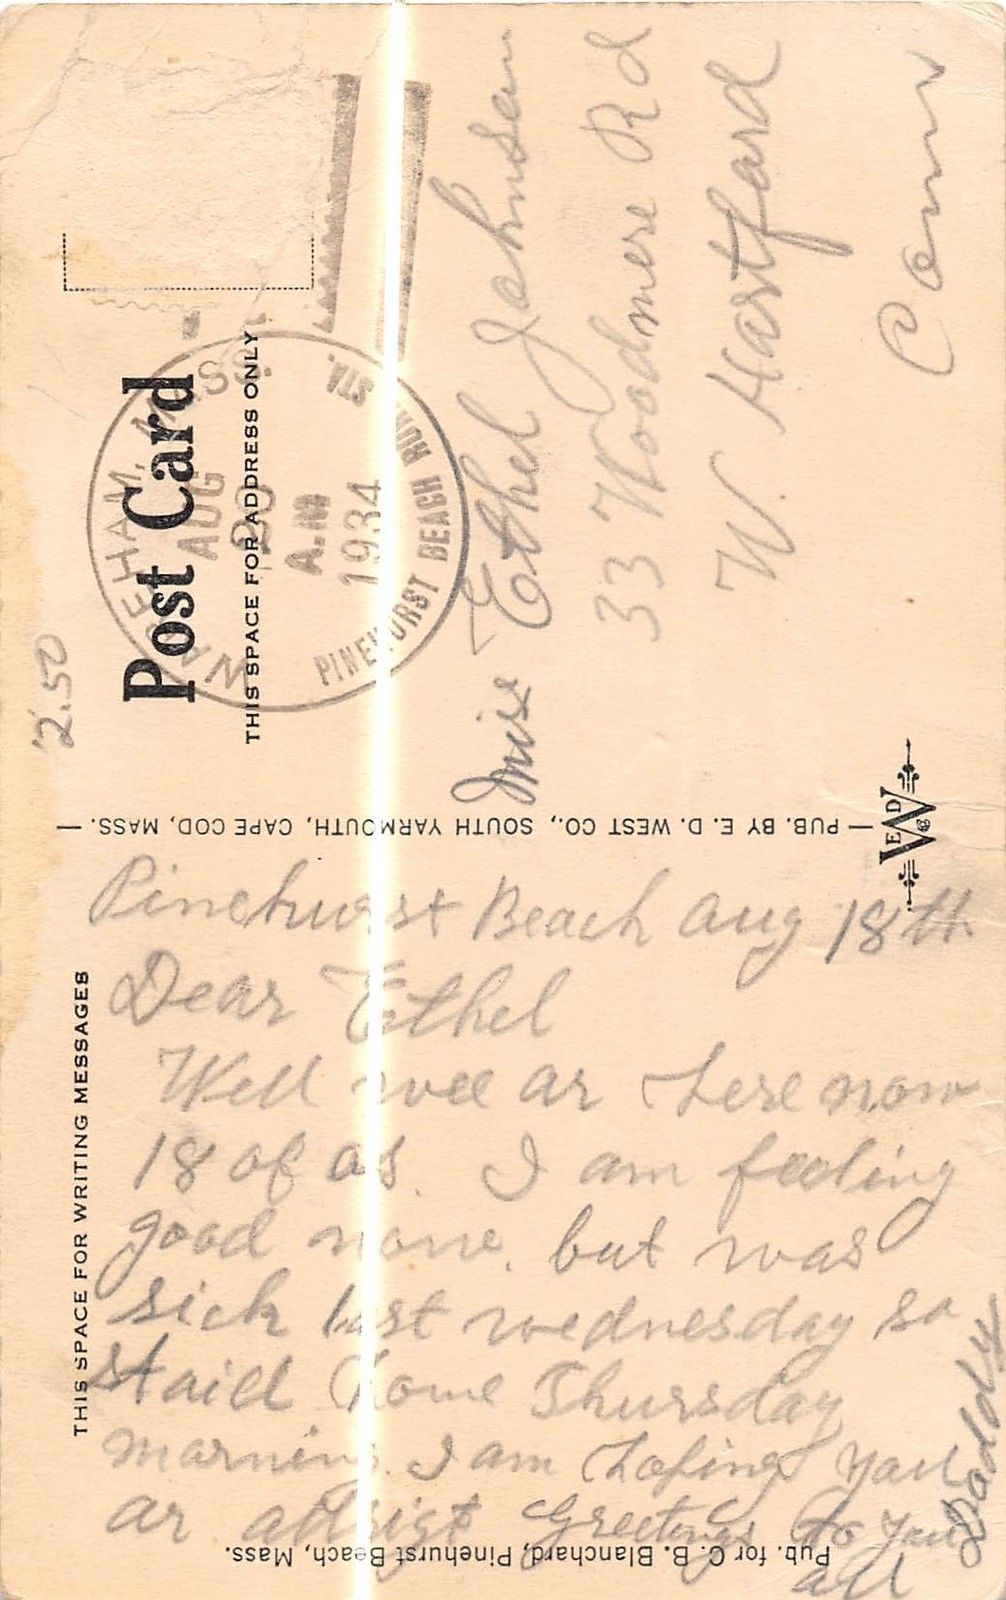 2.50
Post Card
THIS SPACE FOR ADDRESS ONLY
WAREHAM, MASS.
AUG
20
A.M
1934
PINEHURST BEACH RUR. STA.
Miss Ethel Johnson
33 Woodmere Rd
W. Hartford
Conn
— PUB. BY E. D. WEST CO., SOUTH YARMOUTH, CAPE COD, MASS. —
E D
W
& Co
THIS SPACE FOR WRITING MESSAGES
Pinehurst Beach Aug 18th
Dear Ethel
Well wee ar here now
18 of os. I am feeling
good none. but was
sick last wednesday so
staid home Thursday
morning. I am hoping you
ar allrigt Greetings to you
all
Daddy
Pub. for C. B. Blanchard, Pinehurst Beach, Mass.